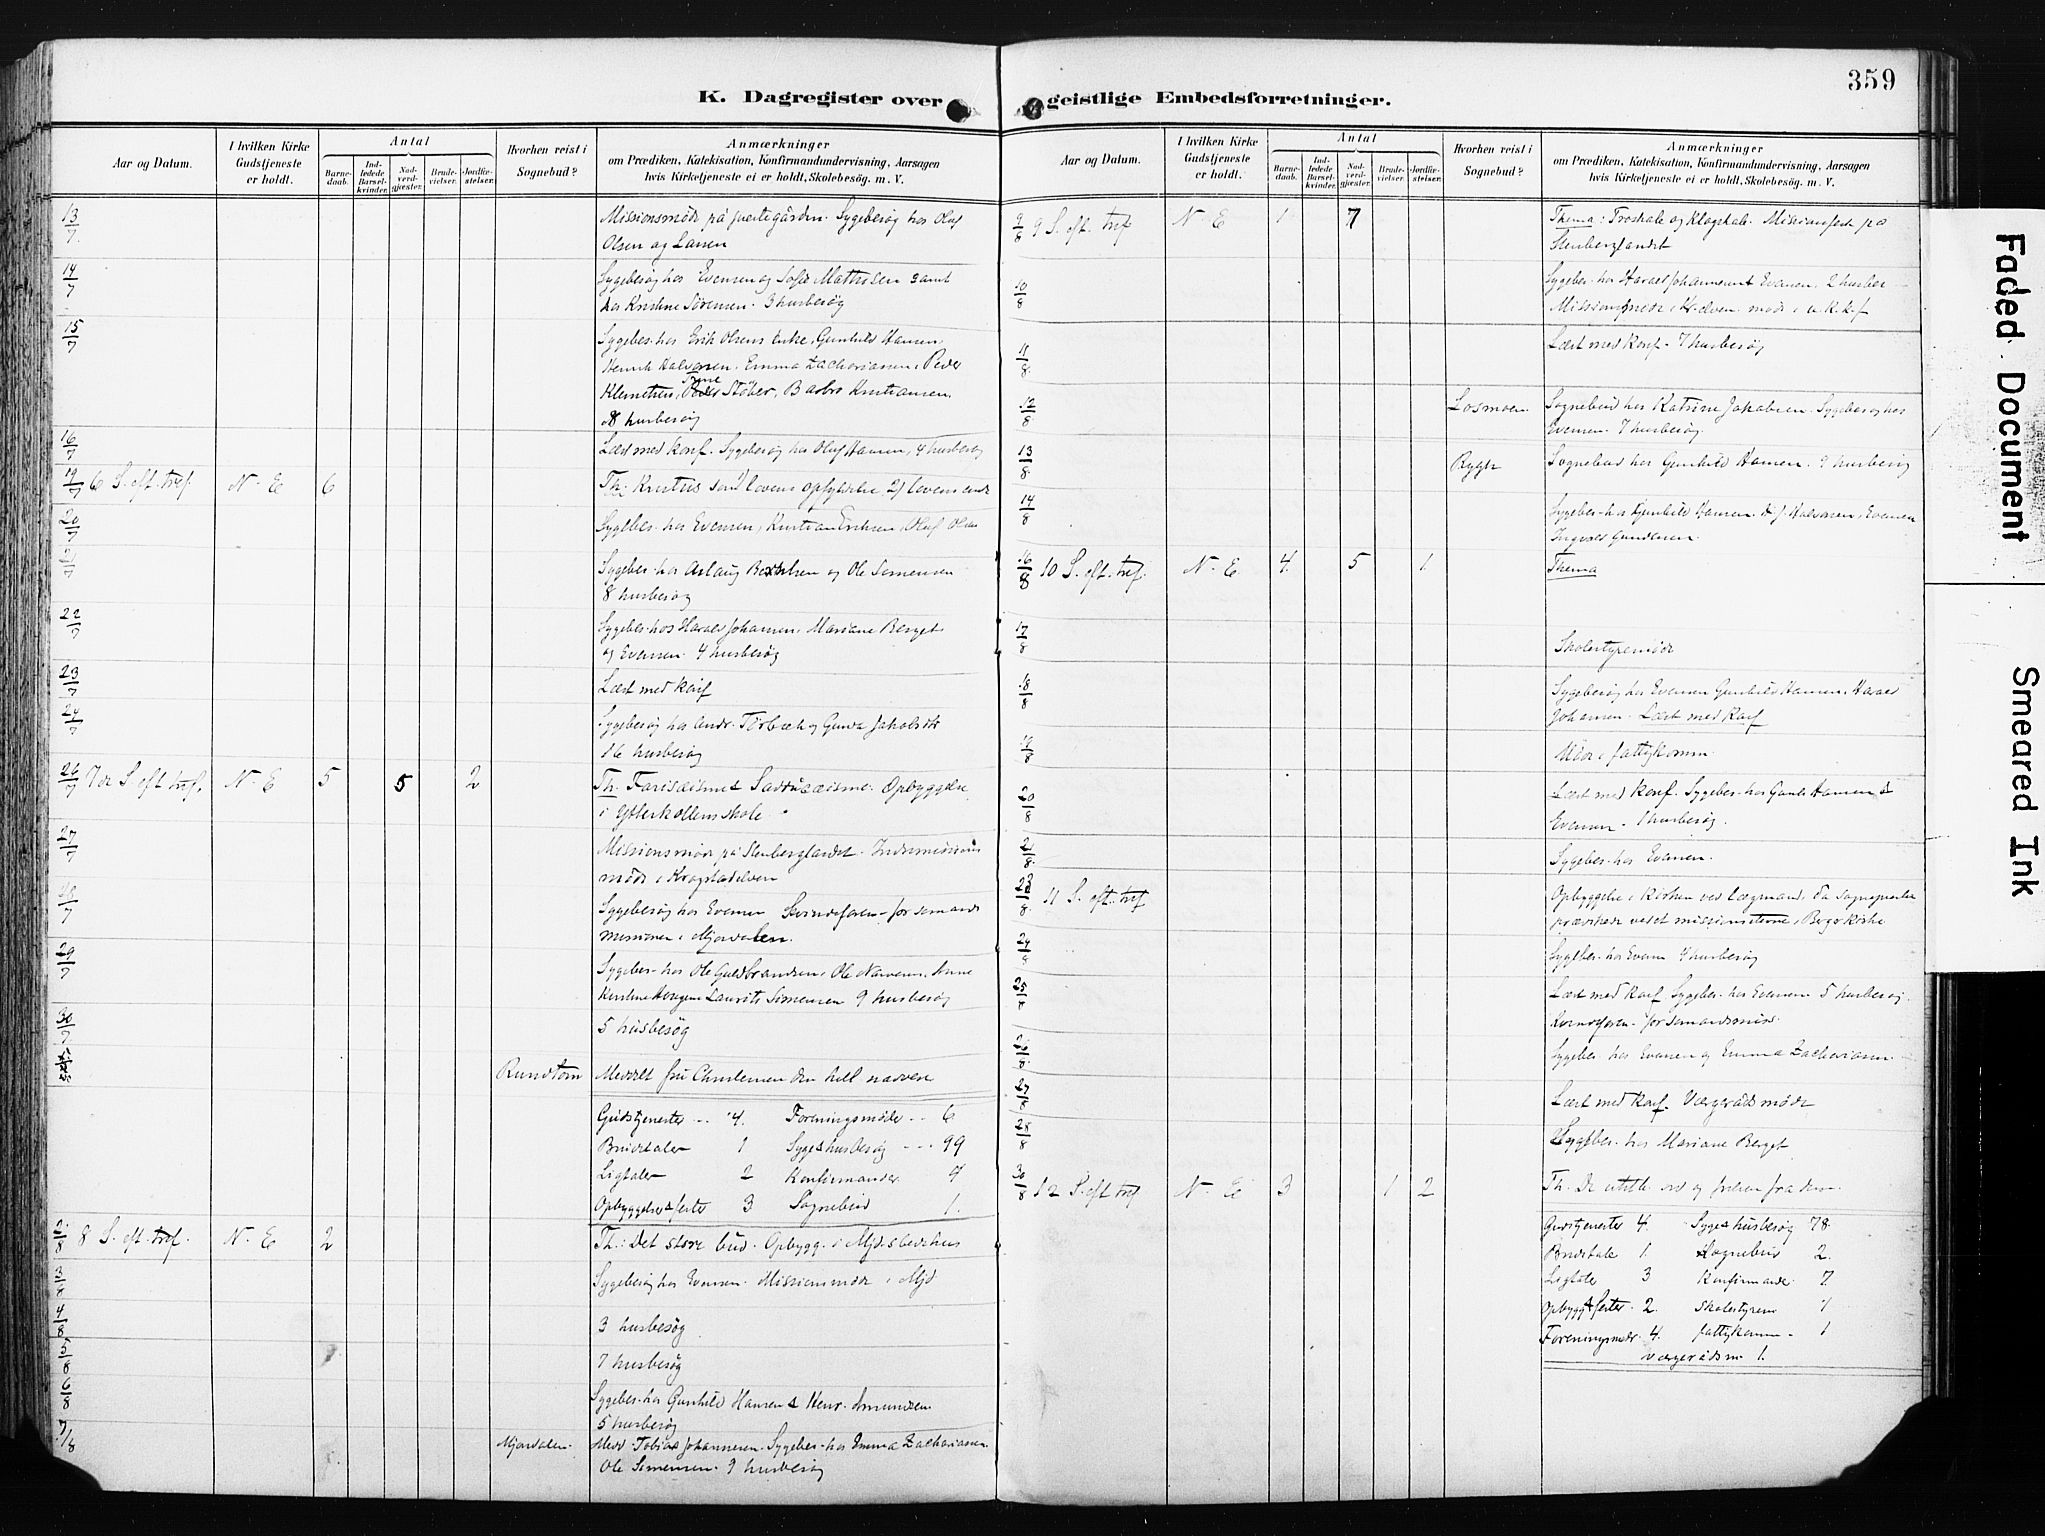 K. Dagregister over geistlige Embedsforretninger.
359
Aar og Datum.
I hvilken Kirke Gudstjeneste er holdt.
Antal
Barne-daab.
Ind-ledede Barsel-kvinder.
Nad-verd-gjester.
Brude-vielser.
Jordfæ-stelser.
Hvorhen reist i Sognebud?
Anmærkninger
om Prædiken, Katekisation, Konfirmandundervisning, Aarsagen
hvis Kirketjeneste ei er holdt, Skolebesøg. m. V.
13/7 Missionsmöde på prestegården. Sygebesög hos Oluf
Olsen og Larsen
14/7 Sygebesög hos Evensen og Sofie Mathisen samt
hos Kristine Sörensen. 3 husbesög
15/7 Sygebes. hos Erik Olsens enke, Gunhild Hansen,
Henrik Halvorsen. Emma Zachariassen, Peder
Klemetsen, Stöber, Barbro Kristiansen
8 husbesög
16/7 Læst med konf. Sygebesög hos Oluf Hansen, 4 husbesög
19/7 6 S. eft. tref. N. E 6 Th: Kristus som lovens opfyldelse 2) lovens ende
20/7 Sygebes. hos Evensen, Kristian Eriksen, Oluf Olsen
21/7 Sygebes. hos Aslaug og Ole Simensen
8 husbesög
22/7 Sygebes. hos Harald Johansen, Mariane Berget
og Evensen. 4 husbesög
23/7 Læst med konf
24/7 Sygebesög hos Andr. Torbæk og Gunda Jakobsdtr
16 husbesög
26/7 7de S eft tref. N. E 5 5 2 Th. Farisæisme & Sadducæisme. Opbyggelse
i Ytterkollens skole
27/7 Missionsmöde på Stenberglandet. Indremissions
möde i Krogstadelven
28/7 Sygebesög hos Evensen Kvindeforen. for sömands
missionen i Mjøndalen.
29/7 Sygebes. hos Ole Guldbrandsen, Ole Narvesen, Anne
Kirstine Haugen Laurits Simensen 9 husbesög
30/7 5 husbesög
Rundtom Meddelt fru Christensen den hell nadvere
Gudstjenester 4. Foreningsmöder 6
Brudetaler 1 Syge & husbesög 99
Ligtaler 2 Konfirmander
Opbyggelser & fester 3 Sognebud 1.
2/8 8 S. eft. tref. N. E 2 Th.: Det store bud. Opbygg. i Mjd.s bedehus
3/8 Sygebesög hos Evensen. Missionsmöde i Mjd
4/8 3 husbesög
5/8 7 husbesög
6/8 Sygebes. hos Gunhild Hansen & Henr. Amundsen
5 husbesög
7/8 Mjøndalen. Medd. Tobias Johannesen. Sygebes. hos Emma Zachariassen
Ole Simensen. 9 husbesög
Aar og Datum.
I hvilken Kirke Gudstjeneste er holdt.
Antal
Barne-daab.
Ind-ledede Barsel-kvinder.
Nad-verd-gjester.
Brude-vielser.
Jordfæ-stelser.
Hvorhen reist i Sognebud?
Anmærkninger
om Prædiken, Katekisation, Konfirmandundervisning, Aarsagen
hvis Kirketjeneste ei er holdt, Skolebesøg. m. V.
9/8 9 S. eft. tref N. E 1 7 Thema: Troskab og Klogskab. Missionsfest på
Stenberglandet
10/8 Sygebes. hos Harald Johannesen & Evensen. 2 husbes
Missionsmöde i Kr.elven. möde i u.k.k.f
11/8 Læst med konf. 7 husbesög
12/8 Losmoen Sognebud hos Katrine Jakobsen. Sygebesög hos
Evensen. 7 husbesög.
13/8 Bygh Sognebud hos Gunhild Hansen. 9 husbesög
14/8 Sygebes. hos Gunhild Hansen, Halvorsen, Evensen
Ingvald Gundersen
16/8 10 S. eft. tref. N. E 4. 5 1. Thema
17/8 Skolestyremöde
18/8 Sygebesög hos Evensen Gunhild Hansen, Harald
Johansen. Læst med konf
Möde i fattigkomm.
20/8 Læst med konf. Sygebes. hos Gunh Hansen &
Evensen. 1 husbesög.
21/8 Sygebes. hos Evensen.
23/8 11 S. eft. tref Opbyggelse i kirken ved Lægmand, da sognepresten
prædikede vedet missionsstevne i Bergs kirke
24/8 Sygebes. hos Evensen husbesög
25/8 Læst med konf Sygebes. hos Evensen 5 husbesög.
Kvindeforen. for sömandsmiss.
26/8 Sygebes. hos Evensen og Emma Zachariassen
27/8 Læst med konf. Værgerådsmöde
28/8 Sygebes. hos Mariane Berget
30/8 12 S. eft tref. N. E 3 1 2 Th. De
Gudstjenester 4. Syge & husbesög 78.
Brudetale 1. Sognebud 2.
Ligtaler 3 Konfirmander 7
Opbygg & fester. 2. Skolestyrem 1
Foreningsmöder. 4. fattigkomm 1
Værgerådsm 1.
Faded Document
Smeared Ink